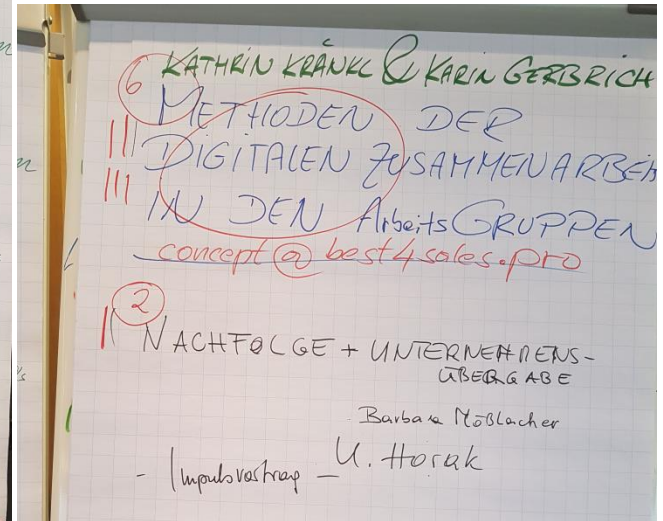 KATHRIN KRÄNKL & KARIN GERBRICH
6
METHODEN DER
DIGITALEN ZUSAMMENARBEIT
IN DEN ArbeitsGRUPPEN
concept@best4sales.pro
2
NACHFOLGE + UNTERNEHMENS-
ÜBERGABE
Barbara Mößlacher
- Impulsvortrag - U. Horak